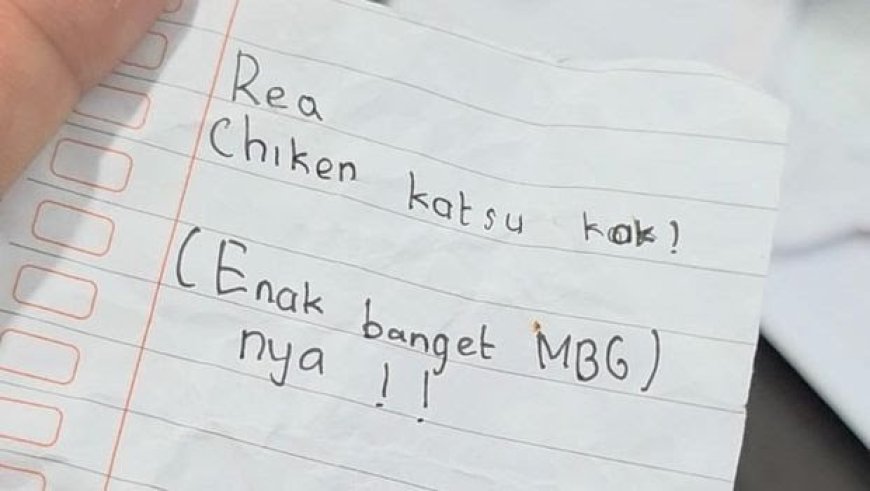 Rea
Chiken katsu kak!
(Enak banget MBG)
nya !!